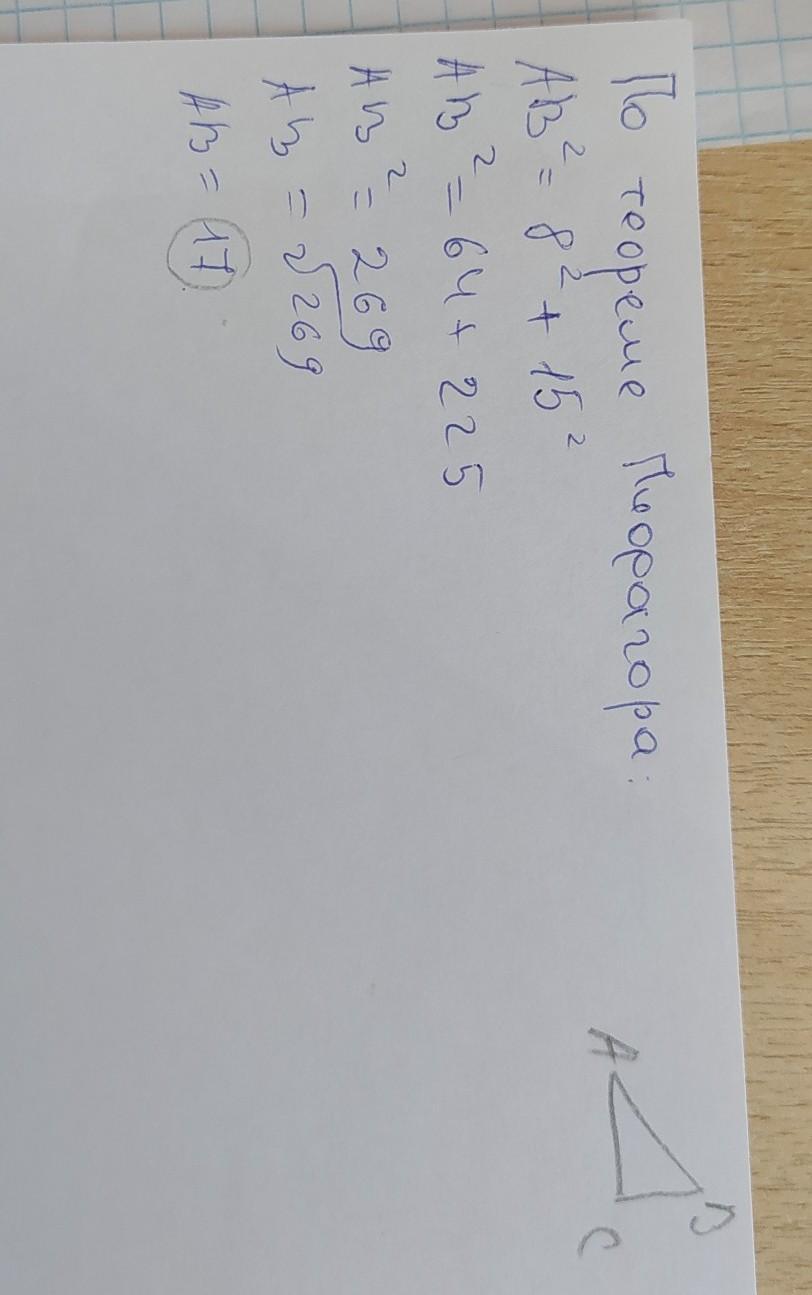 По теореме Пифрагора:
AB² = 8² + 15²
AB² = 64 + 225
AB² = 269
AB = √269
AB = 17
A
B
C